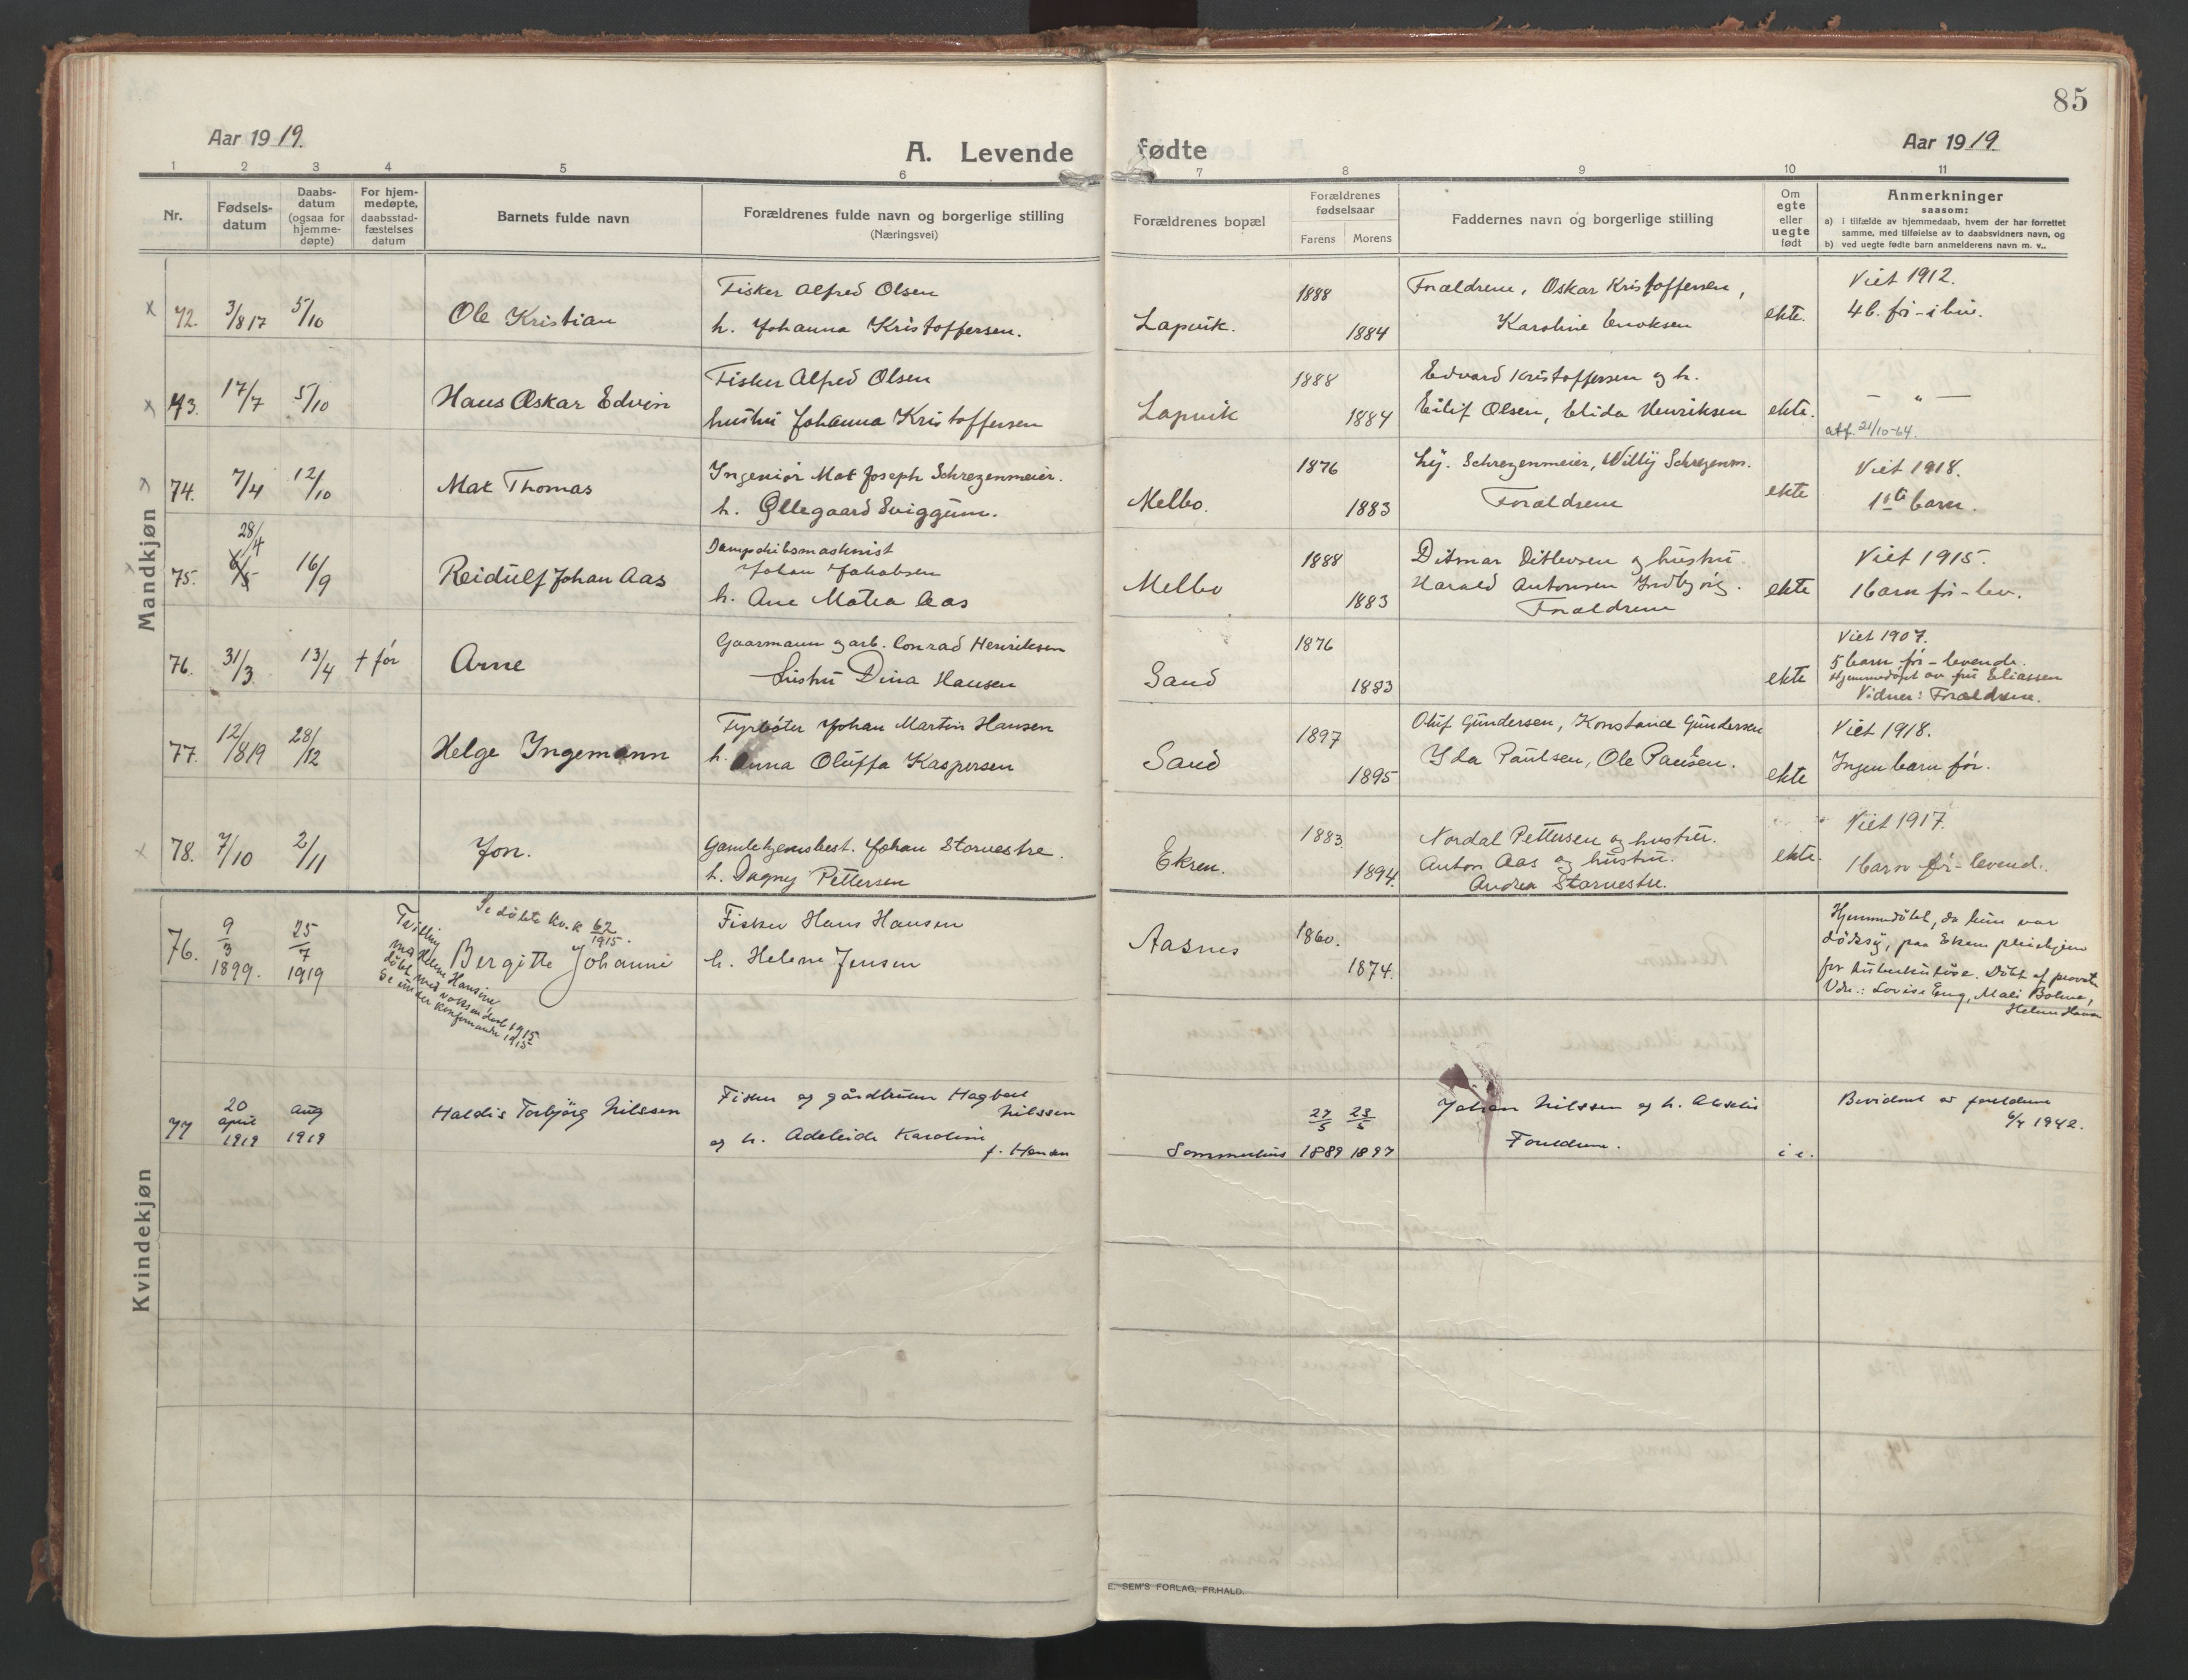 85
Aar 1919.
A. Levende fødte
Aar 1919
1 2 3 4 5 6 7 8 9 10 11
Nr.
Fødsels-
datum
Daabs-
datum
(ogsaa for
hjemme-
døpte)
For hjem-
medøpte,
daabsstad-
fæstelses
datum
Barnets fulde navn
Forældrenes fulde navn og borgerlige stilling
(Næringsvei)
Forældrenes bopæl
Forældrenes
fødselsaar
Farens Morens
Faddernes navn og borgerlige stilling
Om
egte
eller
uegte
født
Anmerkninger
saasom:
a) i tilfælde av hjemmedaab, hvem der har forrettet
samme, med tilføielse av to daabsvidners navn, og
b) ved uegte fødte barn anmelderens navn m. v..
Mandkjøn
x 72. 3/8 17 5/10
Ole Kristian
Fisker Alfred Olsen
h. Johanna Kristoffersen.
Lapvik.
1888
1884
Forældrene, Oskar Kristoffersen,
Karoline Enoksen
ekte.
Viet 1912.
4 b. før - i live.
x 73. 17/7 5/10
Hans Oskar Edvin
Fisker Alfred Olsen
hustru Johanna Kristoffersen
Lapvik
1888
1884
Edvard Kristoffersen og h.
Eilif Olsen, Elida Henriksen
ekte.
— " —
att. 21/10-64.
x 74. 7/4 12/10
Max Thomas
Ingeniør Max Joseph Schrezenmeier.
h. Øllegaard Sviggum.
Melbo.
1876
1883
Ly. Schrezenmeier, Willy Schrezenm.
Forældrene
ekte
Viet 1918.
1ste barn.
x 75. 28/4 6/5 16/9
Reidulf Johan Aas
Dampskibsmaskinist
Johan Jakobsen
h. Ane Matea Aas
Melbo
1888
1883
Ditmar Ditlevsen og hustru.
Harald Antonsen Indbjørg.
Forældrene
ekte
Viet 1915.
1 barn før - lev.
76. 31/3. 13/4 + før
Arne
Gaarmann og arb. Conrad Henriksen
hustru Dina Hansen
Sand
1876
1883
ekte
Viet 1907.
5 barn før - levende.
Hjemmedøpt av fru Eliassen
Vidner: Forældrene.
77. 12/8 19 28/12
Helge Ingemann
Fyrbøter Johan Martin Hansen
h. Anna Oluffa Kaspersen
Sand
1897
1895
Oluf Gundersen, Konstance Gundersen
Ida Paulsen, Ole Paulsen.
ekte
Viet 1918.
Ingen barn før.
x 78. 7/10 2/11
Jon.
Gamlehjemsbest. Johan Storvestre.
h. Dagny Pettersen
Eksren.
1883.
1894.
Nordal Pettersen og hustru.
Anton Aas og hustru.
Andrea Storvestre.
ekte.
Viet 1917.
1 barn før - levend.
Kvindekjøn
76. 9/3 1899. 25/7 1919
Tvilling
m. Helene Hansine,
døbt med voksendaab 1915
Se under konfirmandr 1915
Se døbte kv. k 62/1915.
Bergitte Johanne
Fisker Hans Hansen
h. Helene Jensen
Aasnes
1860.
1874.
Hjemmedöbt, da hun var
dödssyg, paa Eksem pleiehjem
for tuberkulöse. Döbt af provsten
Vdn.: Lovise Eng, Mali Bolme,
Helene Hansen
77 20 april 1919 Aug 1919
Haldis Torbjörg Nilssen
Fisker og gårdbruker Hagbart
Nilssen
og h. Adeleide Karoline
f. Hansen
Sommerhus
27/5 1889 23/5 1897
Johan Nilssen og h.
Foreldrene.
i e.
Bevidnet av foreldrene
6/4 1942.
E. SEM'S FORLAG, FR.HALD.